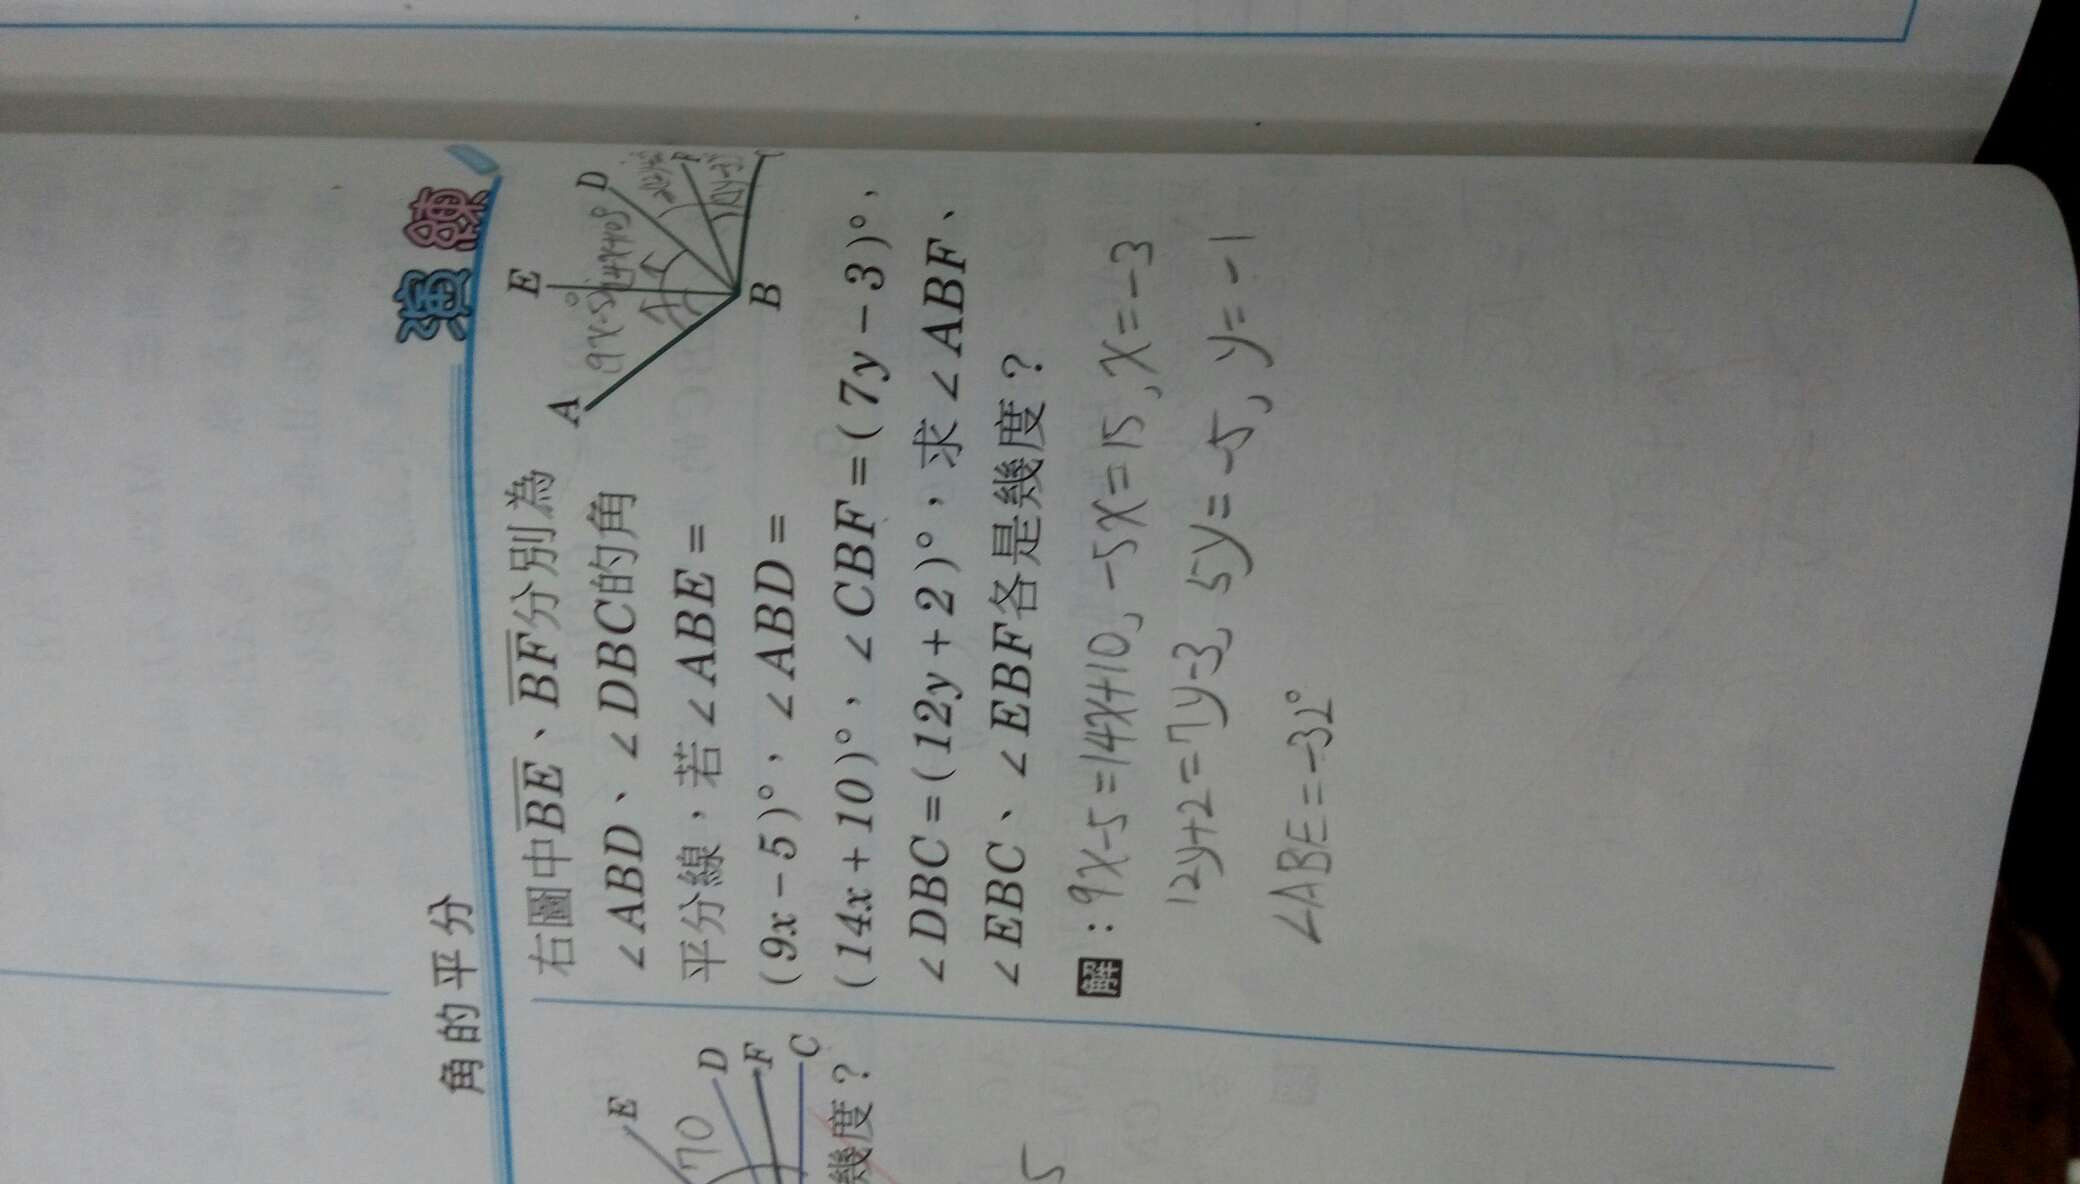 角的平分
演練
右圖中BE、BF分別為
∠ABD、∠DBC的角
平分線，若∠ABE=
(9x-5)°，∠ABD=
(14x+10)°，∠CBF=(7y-3)°，
∠DBC=(12y+2)°，求∠ABF、
∠EBC、∠EBF各是幾度？
A
E
D
F
B
(9x-5)°
(14x+10)°
解：9x-5=14x+10, -5x=15, x=-3
12y+2=7y-3, 5y=-5, y=-1
∠ABE=-32°
E
D
F
C
70
幾度？
5